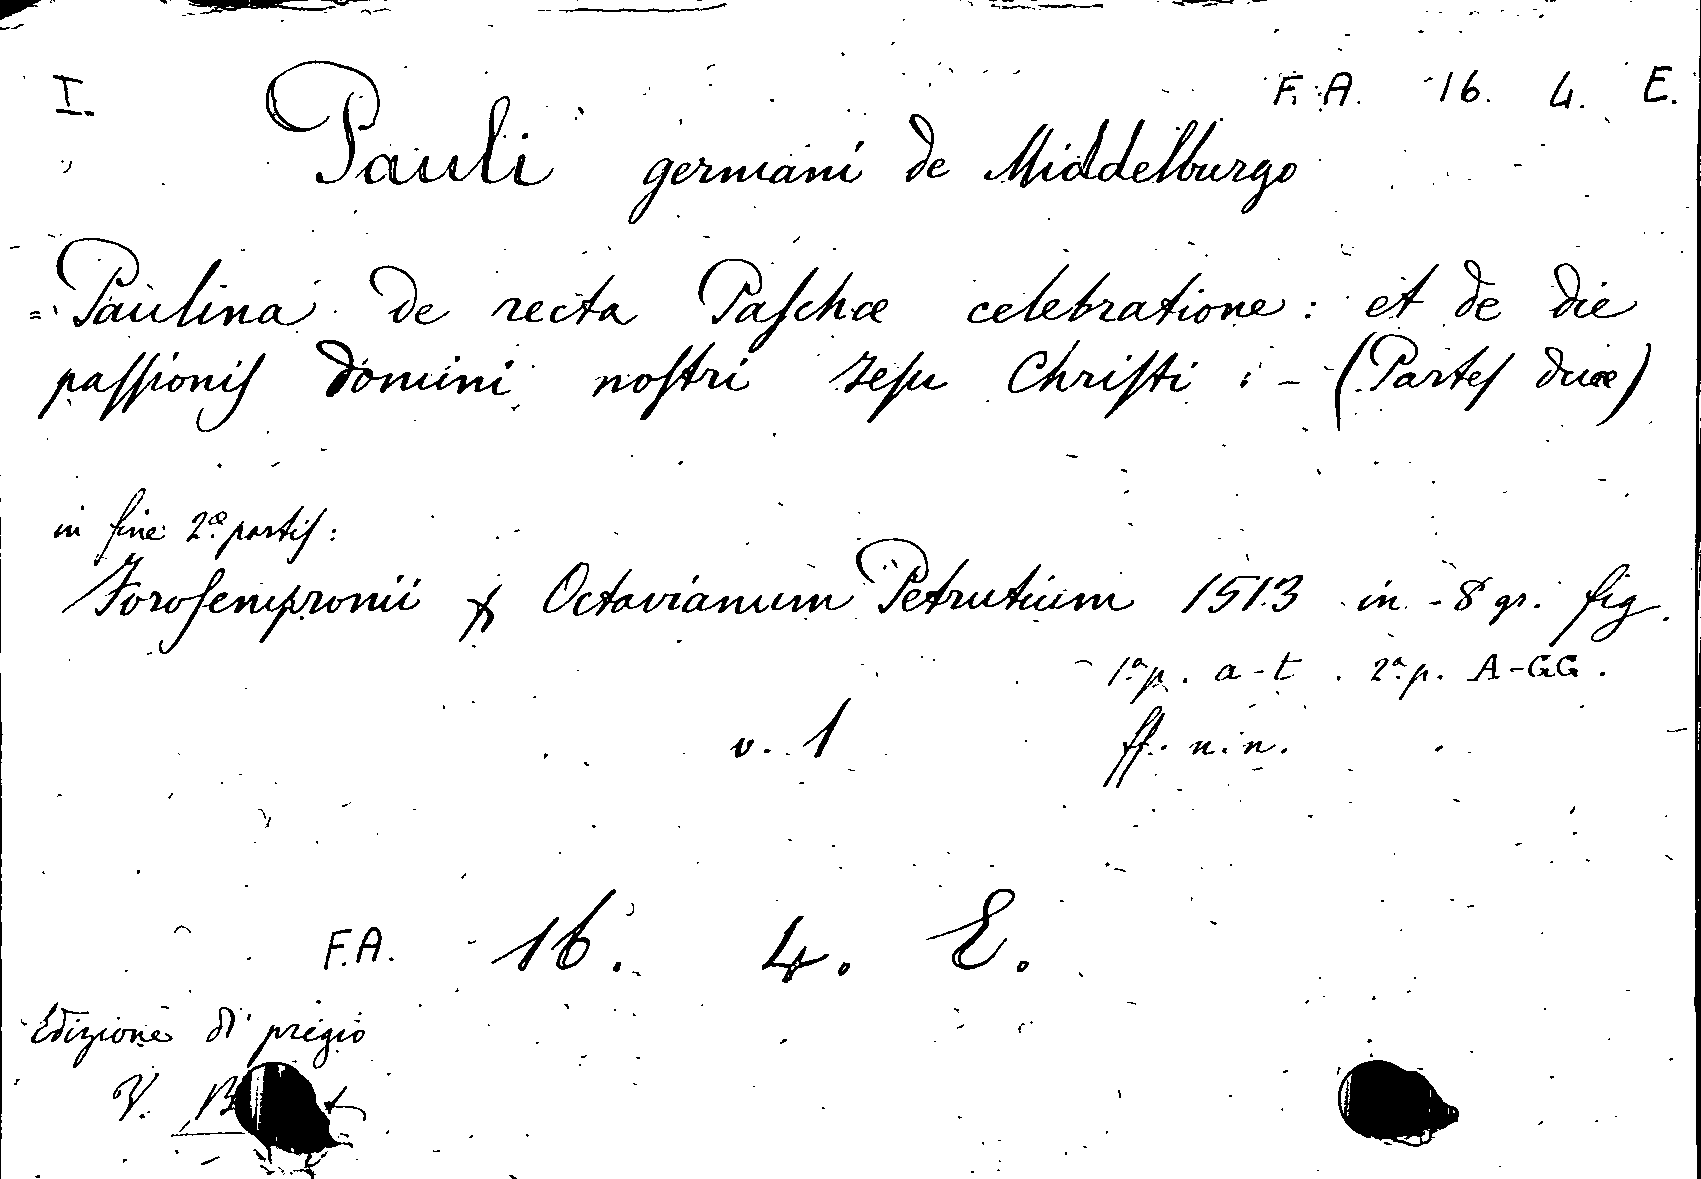 I. F. A. 16. 4. E.
Pauli germani de Middelburgo
= Paulina de recta Paſchæ celebratione : et de die
paſſioniſ domini noſtri Jeſu Chriſti : - (Parteſ duæ)
in fine 2.æ partiſ :
Foroſempronii p Octavianum Petrutium 1513 in - 8 gr. fig.
1.a p. a - t . 2.a p. A - GG .
v. 1 ff. n. n.
F.A. 16. 4. E.
Edizione di pregio
V.